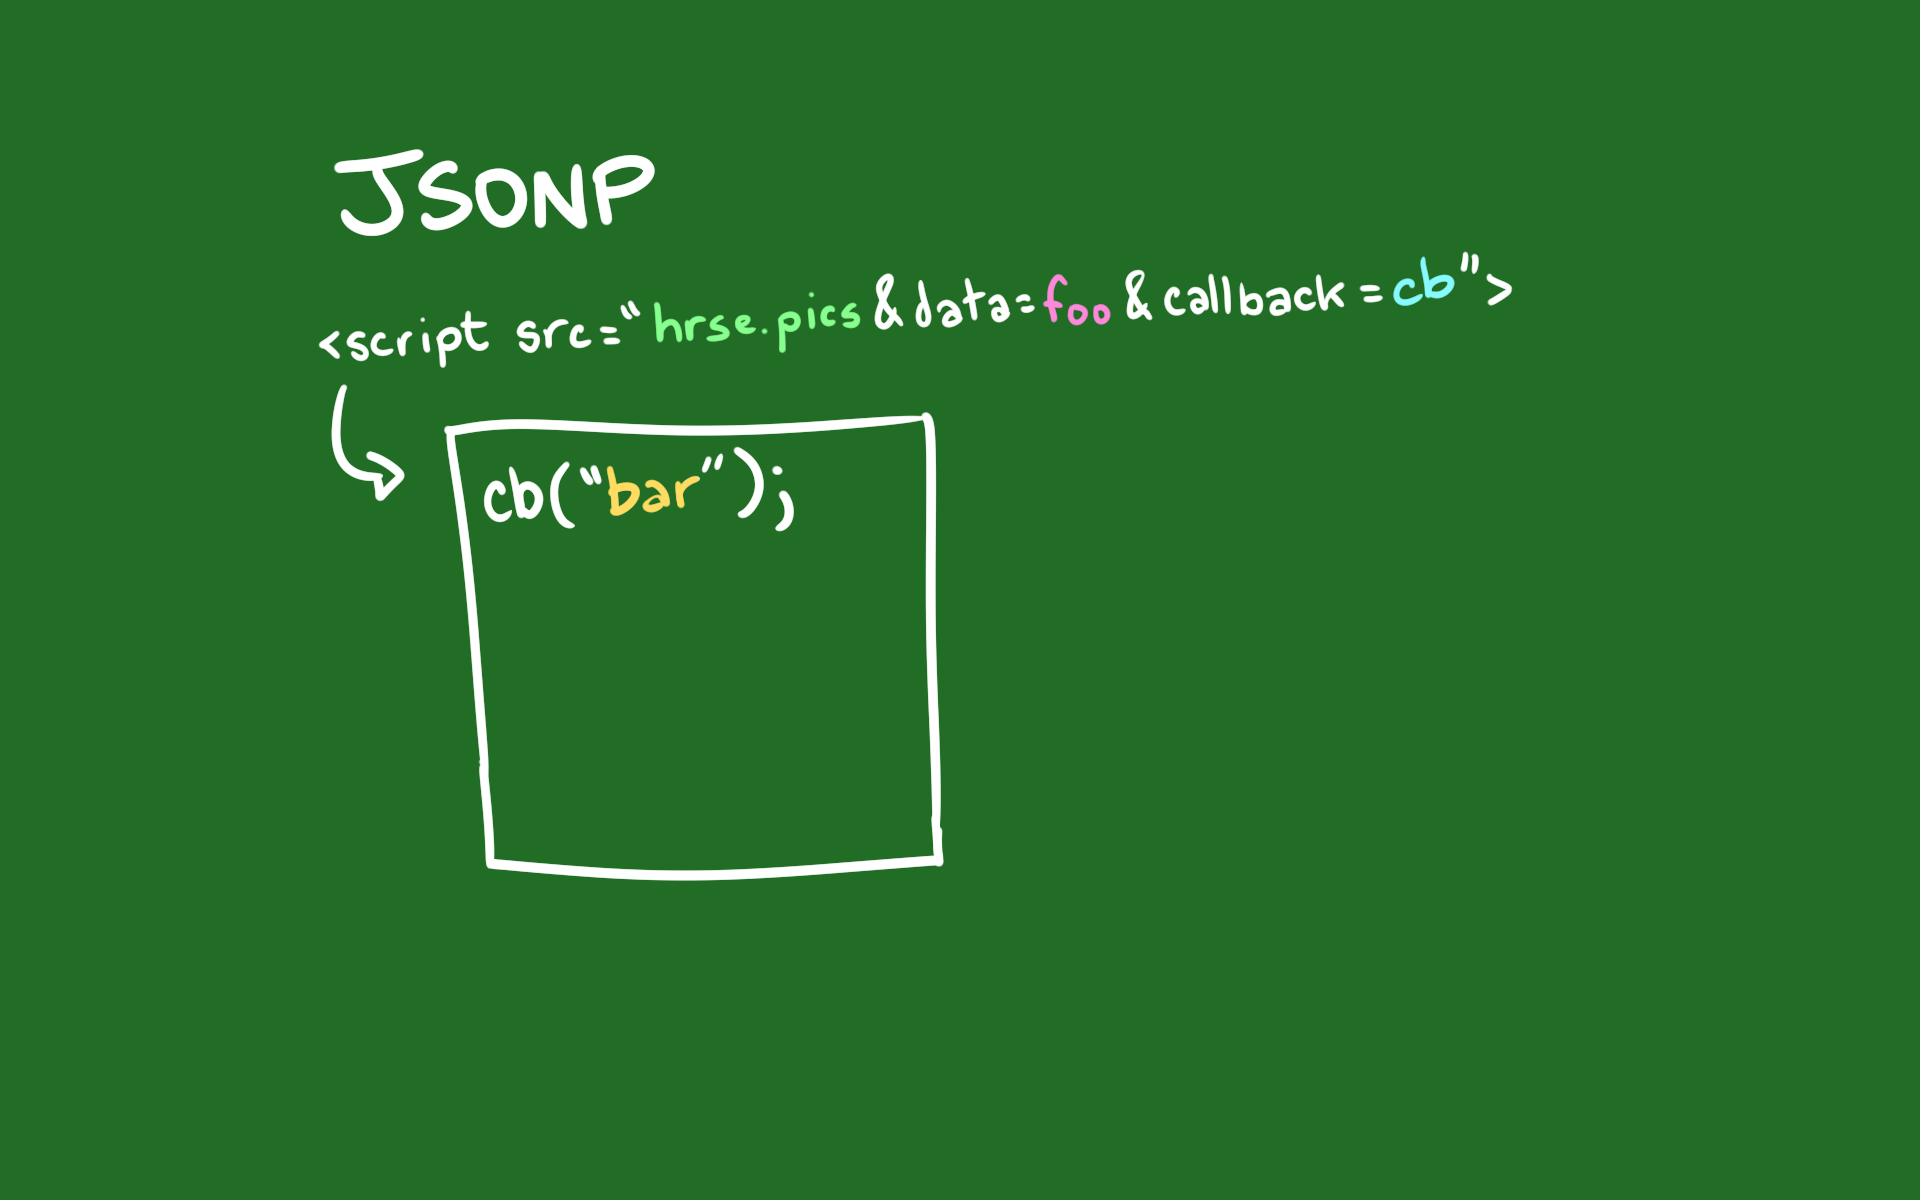 JSONP
<script src="hrse.pics&data=foo&callback=cb">
cb("bar");